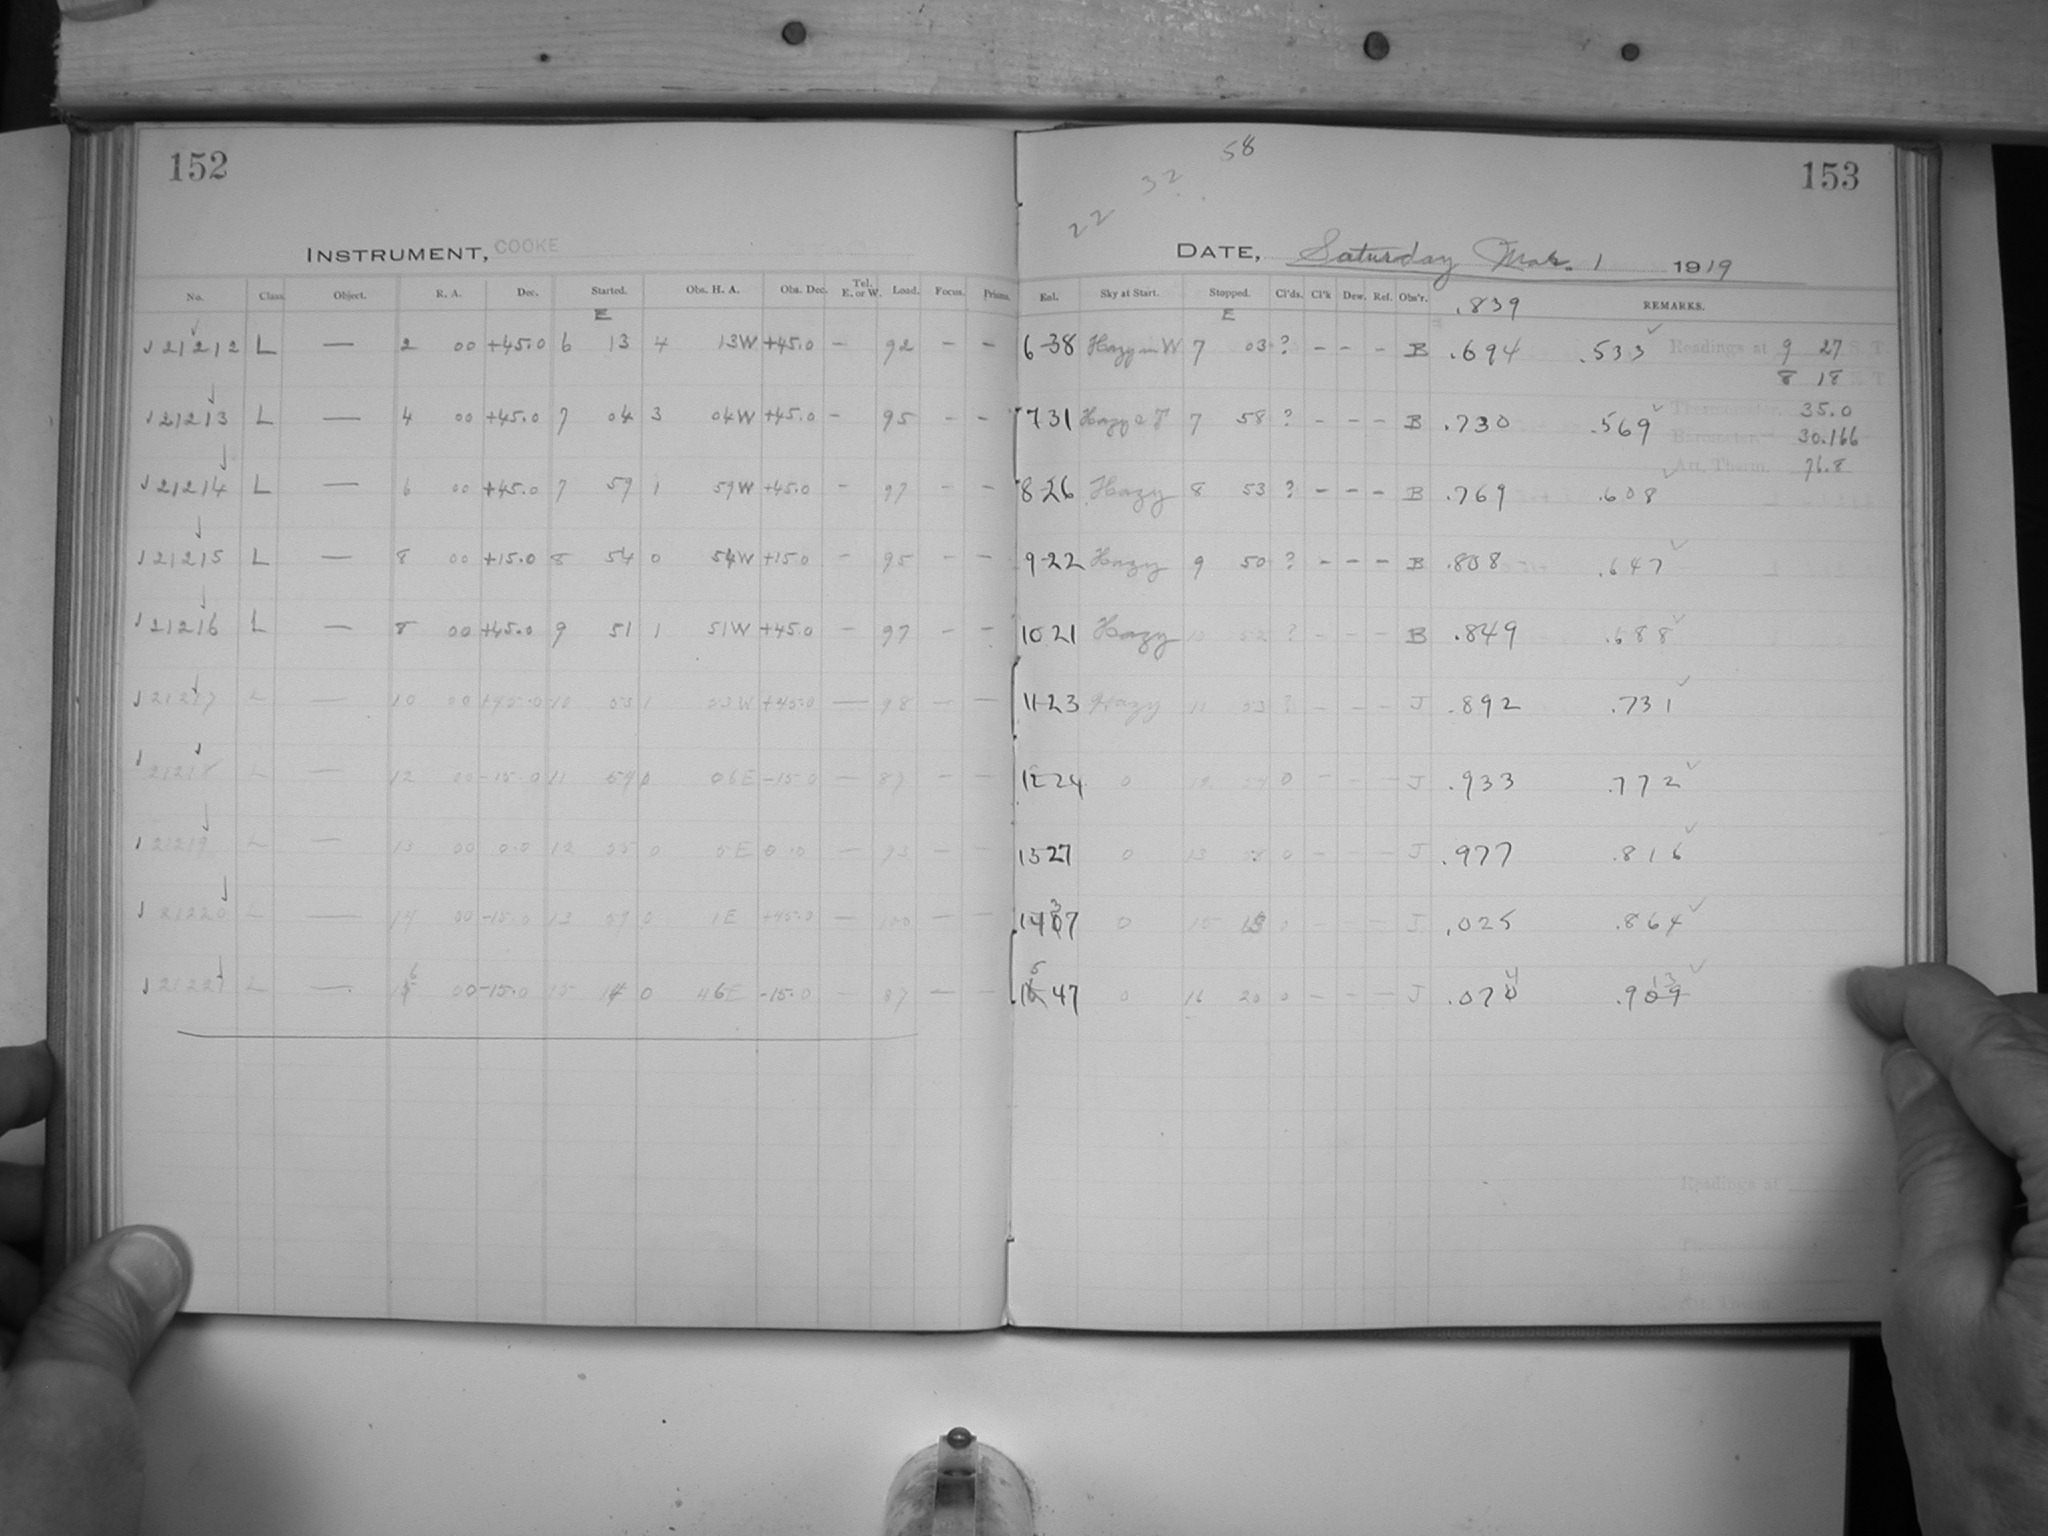 152
INSTRUMENT, COOKE
No. Class. Object. R. A. Dec. Started. Obs. H. A. Obs. Dec. Tel. E. or W. Load. Focus. Prisms.
E
21212 L — 2 00 +45.0 6 13 4 13W +45.0 - 92 - -
21213 L — 4 00 +45.0 7 04 3 04W +45.0 - 95 - -
21214 L — 6 00 +45.0 7 59 1 59W +45.0 - 97 - -
21215 L — 8 00 +15.0 8 54 0 54W +15.0 - 95 - -
21216 L — 8 00 +45.0 9 51 1 51W +45.0 - 97 - -
21217 L — 10 00 +45.0 10 53 1 53W +45.0 — 98 - —
21218 L — 12 00 -15.0 11 54 0 06E -15.0 — 87 - -
21219 L — 13 00 0.0 12 55 0 5E 0.0 — 93 - -
21220 L — 14 00 -15.0 13 59 0 1E +45.0 — 100 - -
21221 L — 16 00 -15.0 15 14 0 46E -15.0 - 87 - -
153
58
32
22
DATE, Saturday Mar. 1 1919
Enl. Sky at Start. Stopped. Cl'ds. Cl'k Dew. Ref. Obs'r. .839 REMARKS.
E
6-38 Hazy in W 7 03 ? - - - B .694 .533 Readings at 9 27 S. T.
8 18
7 31 Hazy 7 58 ? - - - B .730 .569 35.0
Barometer 30.166
8-26 Hazy 8 53 ? - - - B .769 .608 Att. Therm. 76.8
9-22 Hazy 9 50 ? - - - B .808 .647
10 21 Hazy 10 52 ? - - - B .849 .688
11-23 Hazy 11 53 ? - - - J .892 .731
12-24 0 12 54 0 - - - J .933 .772
13 27 0 13 58 0 - - - J .977 .816
14 37 0 15 0 - - - J .025 .864
15 47 0 16 20 0 - - - J .074 .913
Readings at